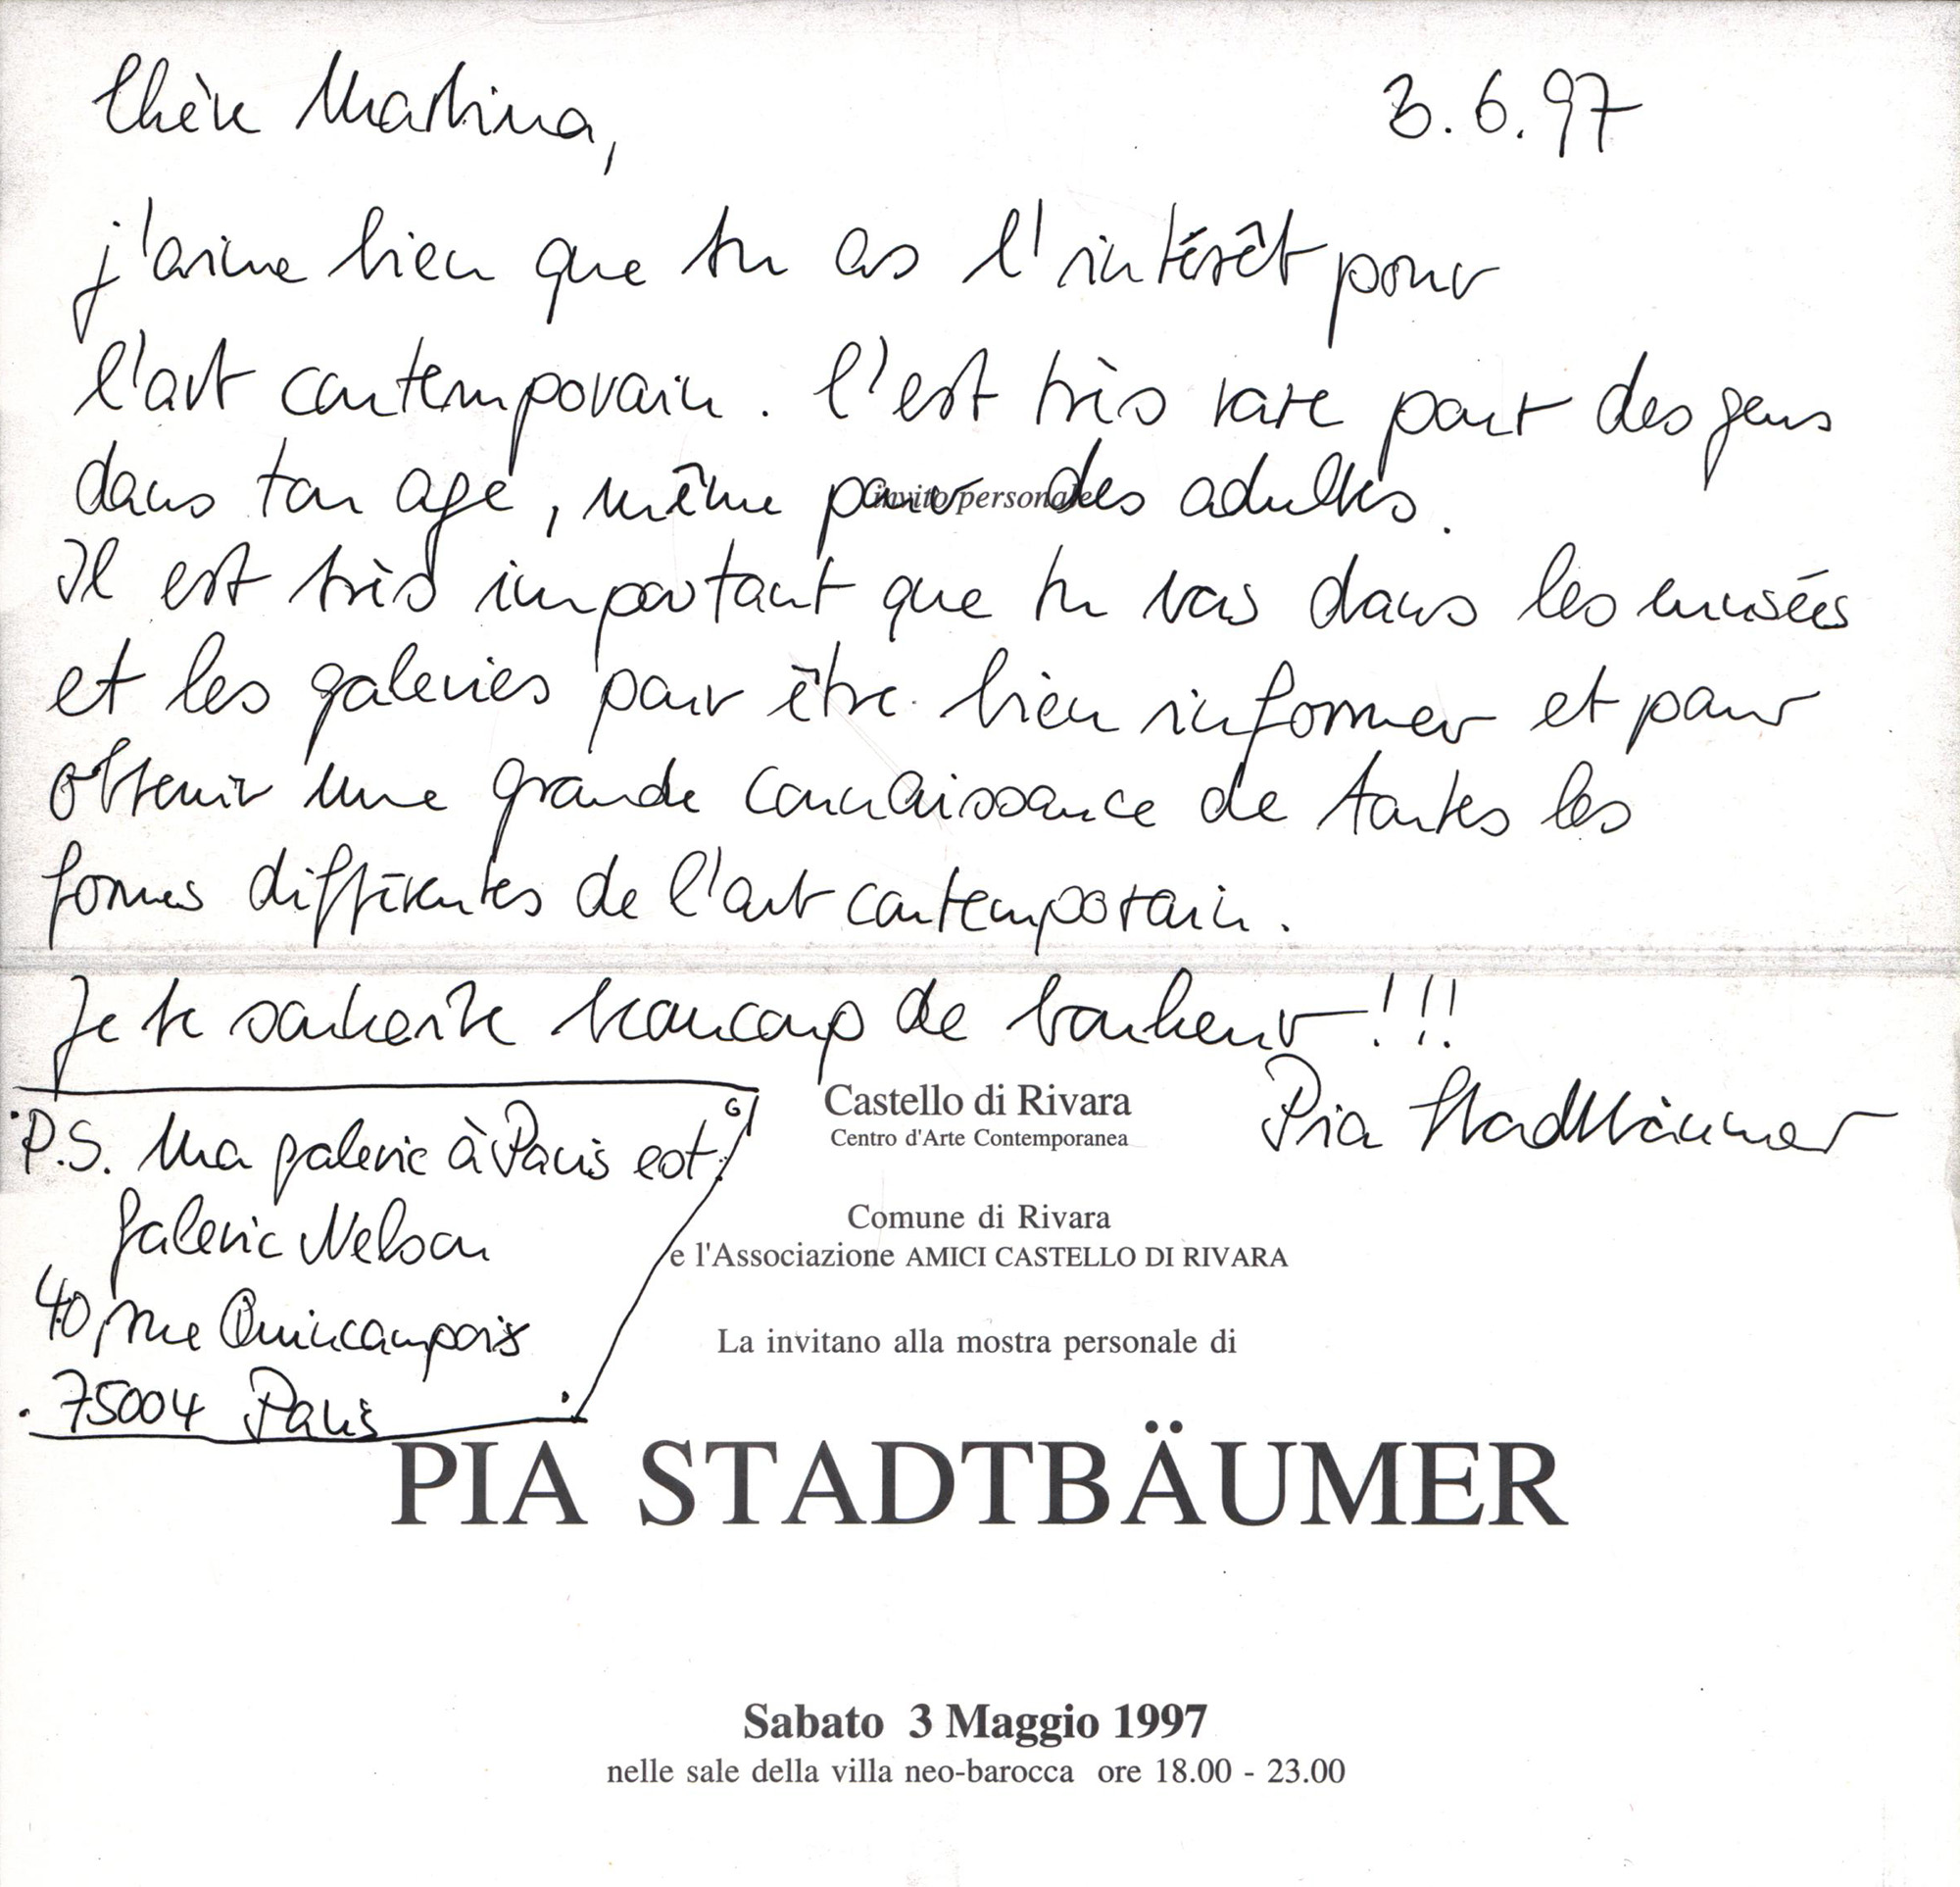 Chère Martina,
3.6.97
j'aime bien que tu as l'intérêt pour
l'art contemporain. C'est très rare pour des gens
dans ton age, même pour des adultes.
invito personale
Il est très important que tu vas dans les musées
et les galeries pour être bien informer et pour
obtenir une grande connaissance de toutes les
formes différentes de l'art contemporain.
Je te souhaite beaucoup de bonheur!!!
Pia Stadtbäumer
P.S. Ma galerie à Paris est:
Galerie Nelson
40, rue Quincampoix
75004 Paris
Castello di Rivara
Centro d'Arte Contemporanea
Comune di Rivara
e l'Associazione AMICI CASTELLO DI RIVARA
La invitano alla mostra personale di
PIA STADTBÄUMER
Sabato 3 Maggio 1997
nelle sale della villa neo-barocca ore 18.00 - 23.00